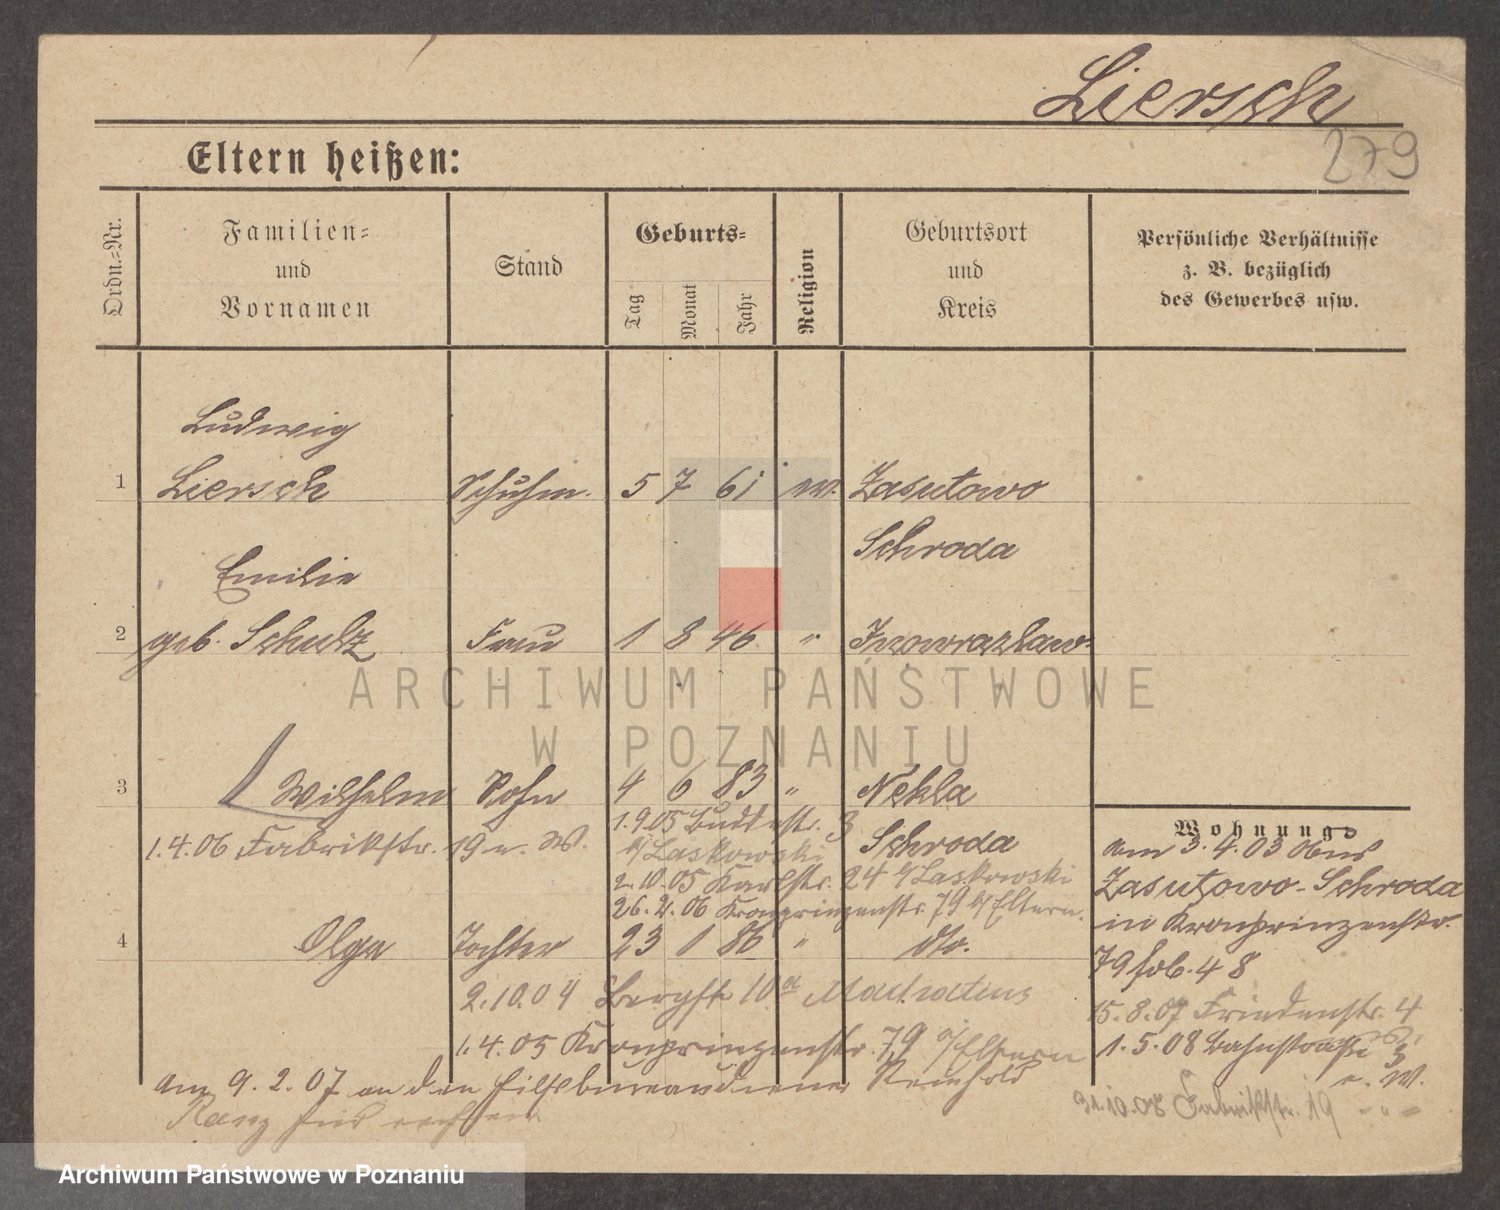 Liersch
279
Eltern heißen:
Ordn.-Nr.
Familien-
und
Vornamen
Stand
Geburts-
Tag
Monat
Jahr
Religion
Geburtsort
und
Kreis
Persönliche Verhältnisse
z. B. bezüglich
des Gewerbes usw.
Ludwig
1 Liersch Schuhm. 5 7 61 ev. Zasutowo
Schroda
Emilie
2 geb. Schulz Frau 1 8 46 " Inowrazlaw
ARCHIWUM PAŃSTWOWE
W POZNANIU
3 Wilhelm Sohn 4 6 83 " Nekla
1.9.05 3
Schroda
1.4.06 Fabrikstr. 19 n. W.
b/Laskowski
2.10.05 Karlstr. 24 b/Laskowski
26.2.06 Kronprinzenstr. 79 b/Eltern.
4 Olga Tochter 23 1 86 " dto.
2.10.04 Bergstr 10a
1.4.05 Kronprinzenstr. 79 b/Eltern
Wohnung
am 3.4.03 aus
Zasutowo-Schroda
in Kronprinzenstr.
79 fol. 48
15.8.07 Friedenstr. 4
1.5.08 Bahnstraße 3
n. W.
31.10.08 Fabrikstr. 19 - " -
am 9.2.07 an den Hilfsbureaudiener Reinhold
Ranz
Archiwum Państwowe w Poznaniu